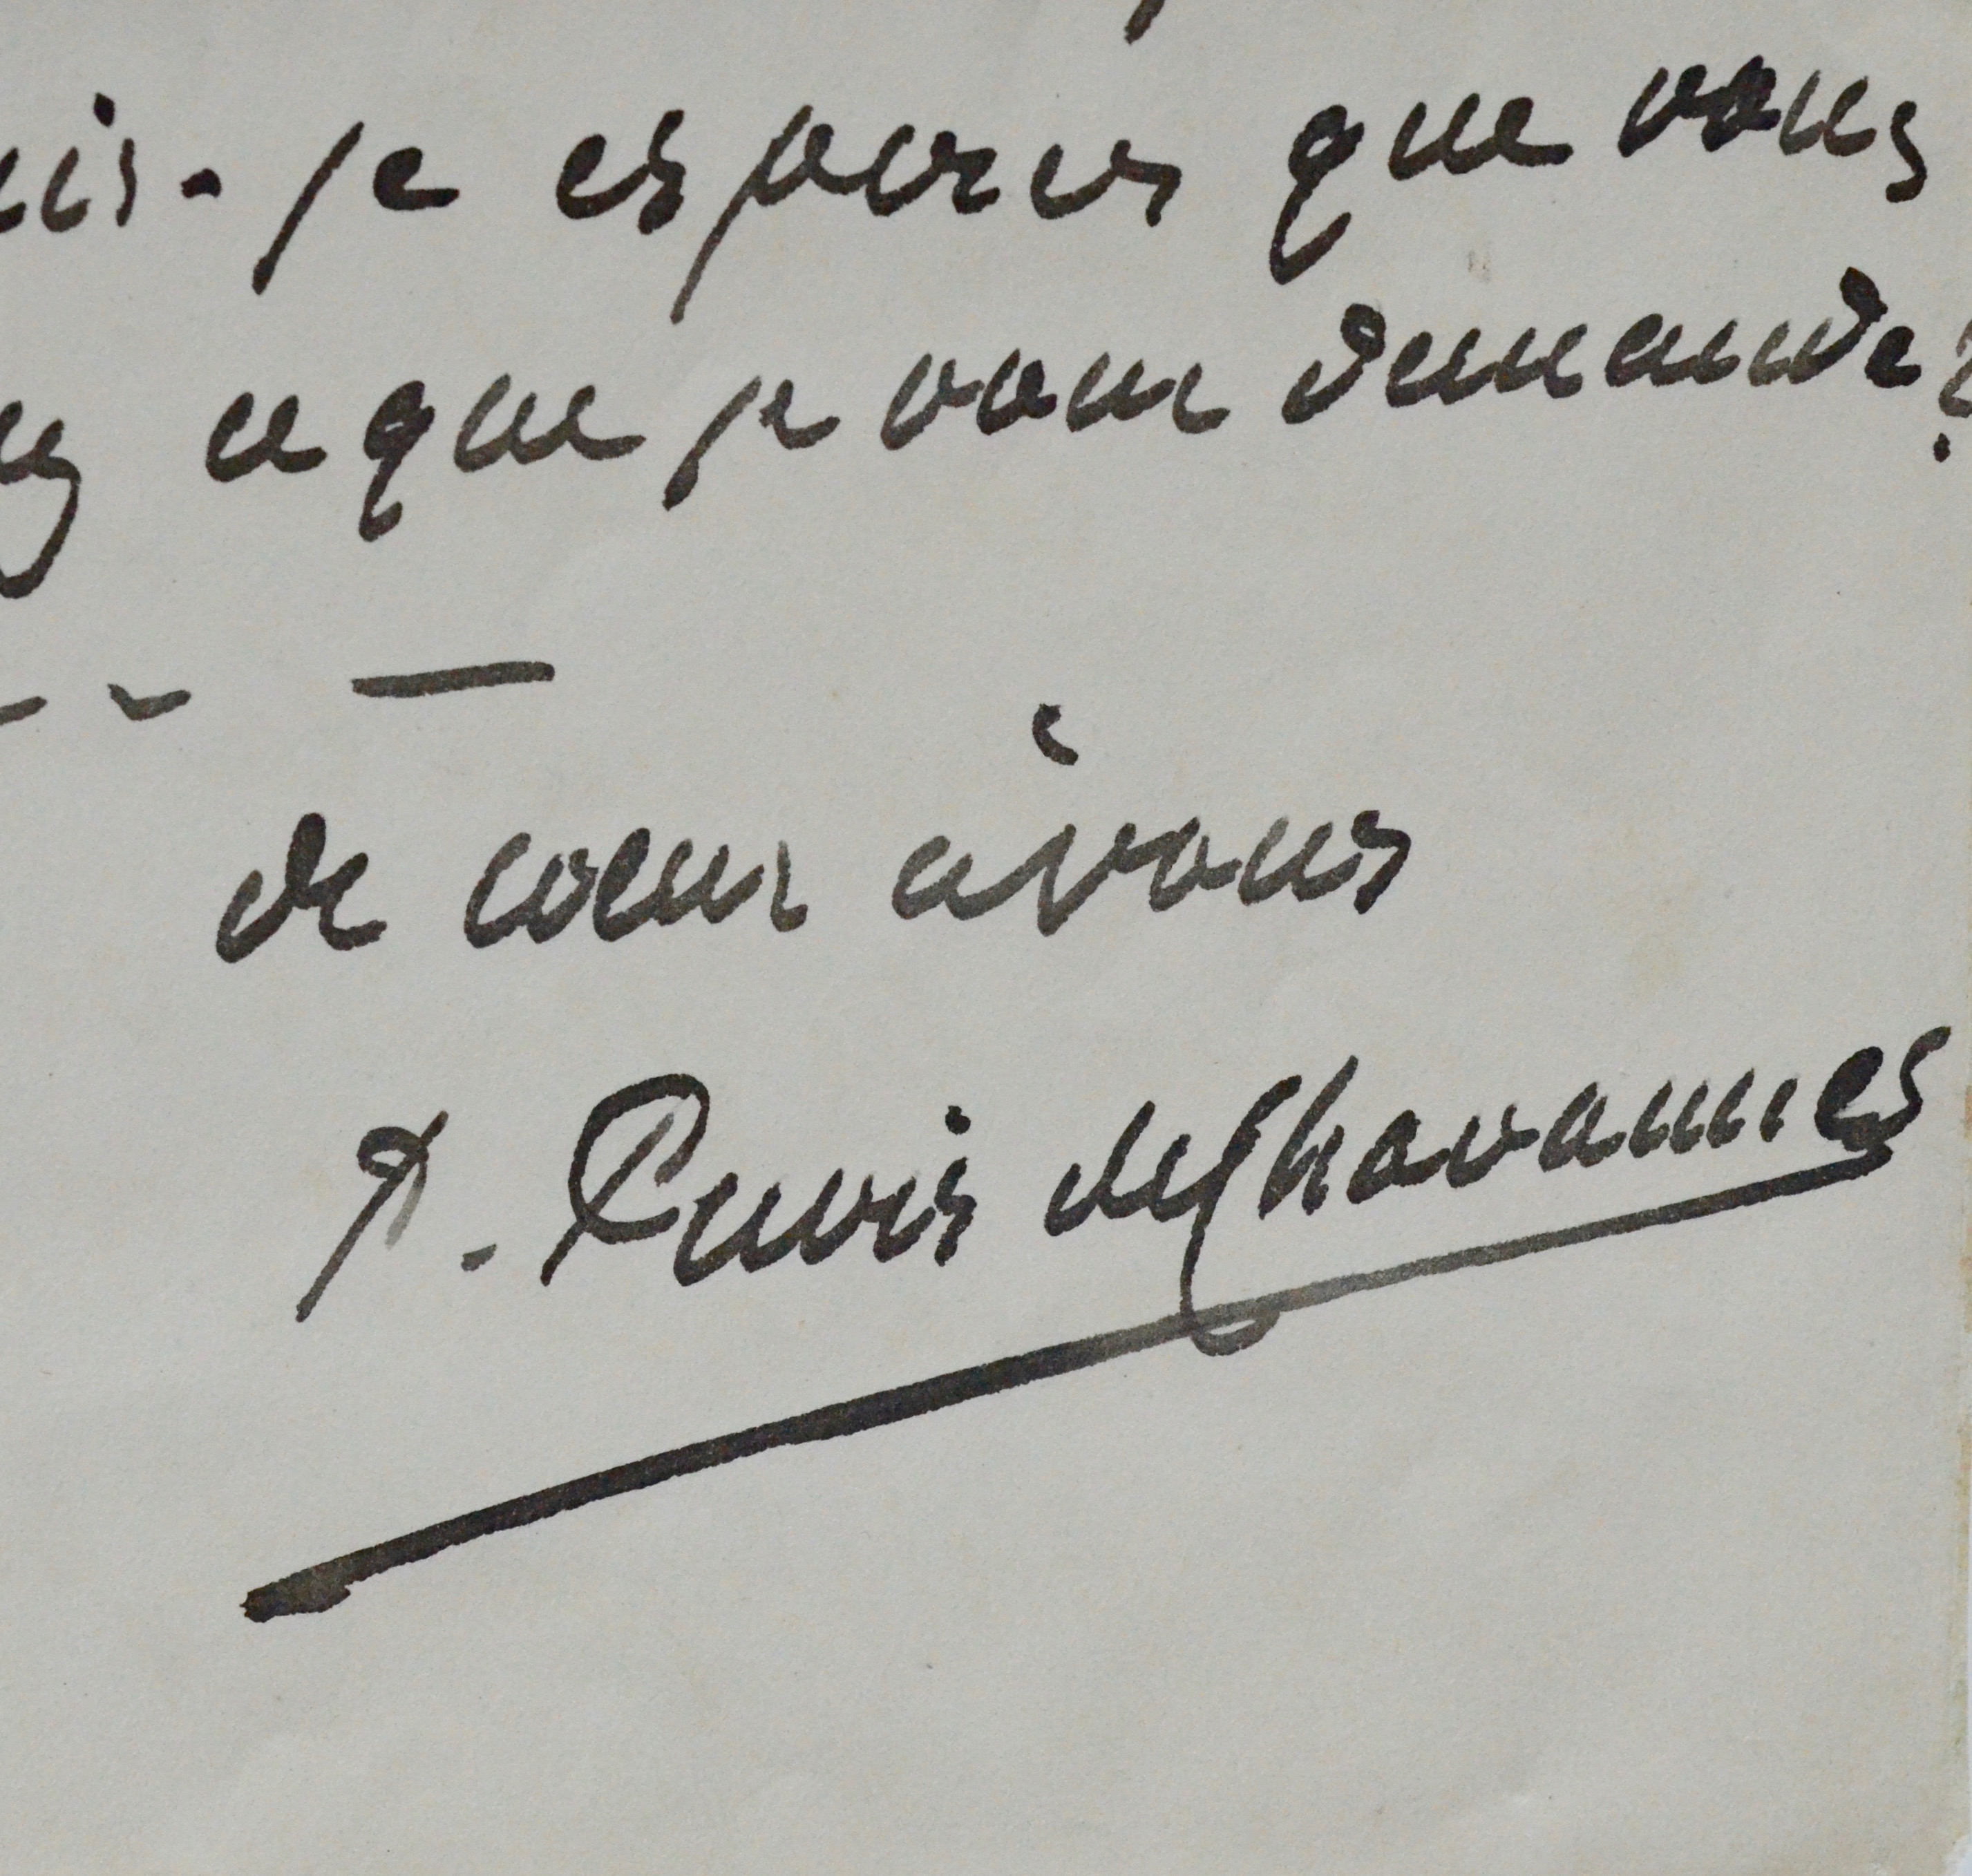 uis-je espérer que vous
ez ce que je vous demande?
de cœur à vous
P. Puvis de Chavannes